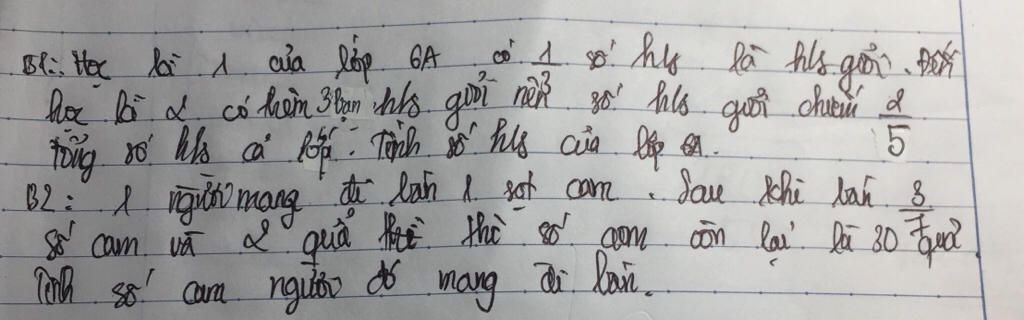 B1: Học kì 1 của lớp 6A có 1 số hs là hs giỏi. Đến
học kì 2 có thêm 3 bạn hs giỏi nên số hs giỏi chiếm 2/5
tổng số hs cả lớp. Tính số hs của lớp 6A.
B2: 1 người mang đi bán 1 sọt cam. Sau khi bán 3/7
số cam và 2 quả thì số cam còn lại là 30 quả
Tính số cam người đó mang đi bán.